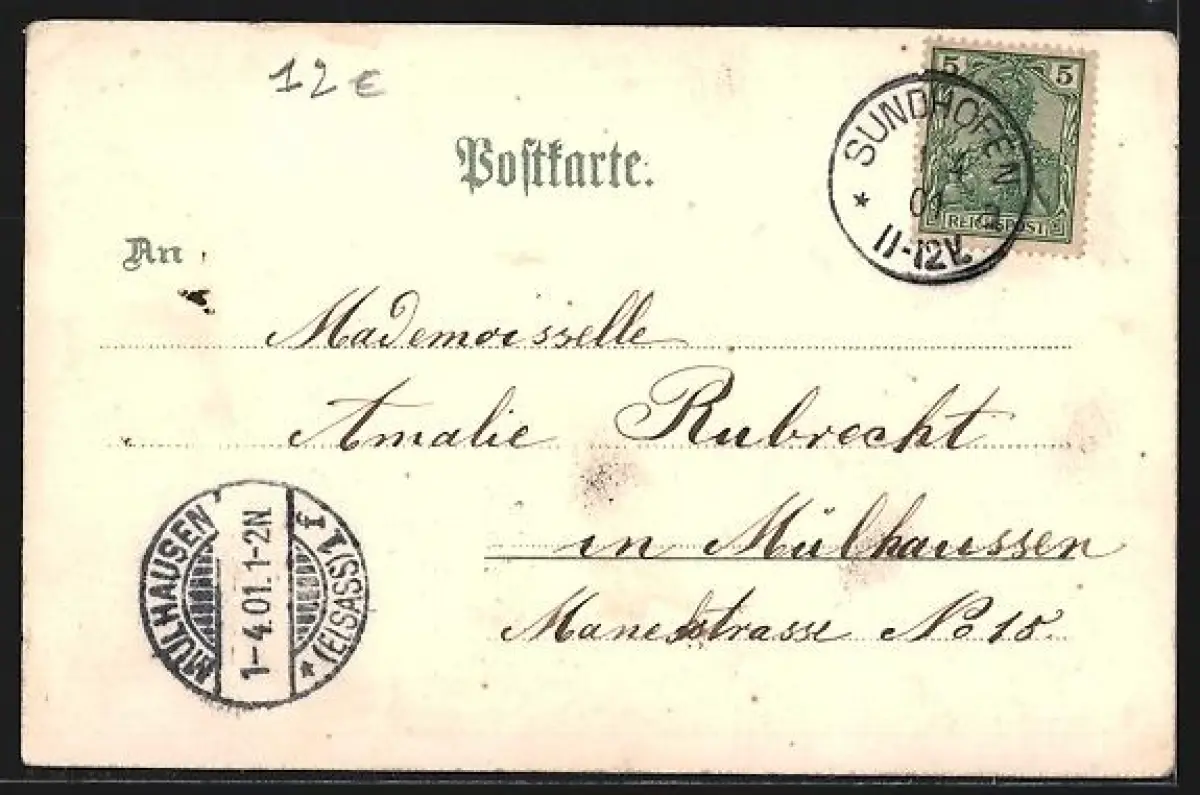 12€
5 5
SUNDHOFEN
01
11-12V.
REICHSPOST
Postkarte.
An
Mademoisselle
Amalie Rubrecht
in Mülhaussen
No 18.
MÜLHAUSEN
1-4.01.1-2N
(ELSASS)1 f